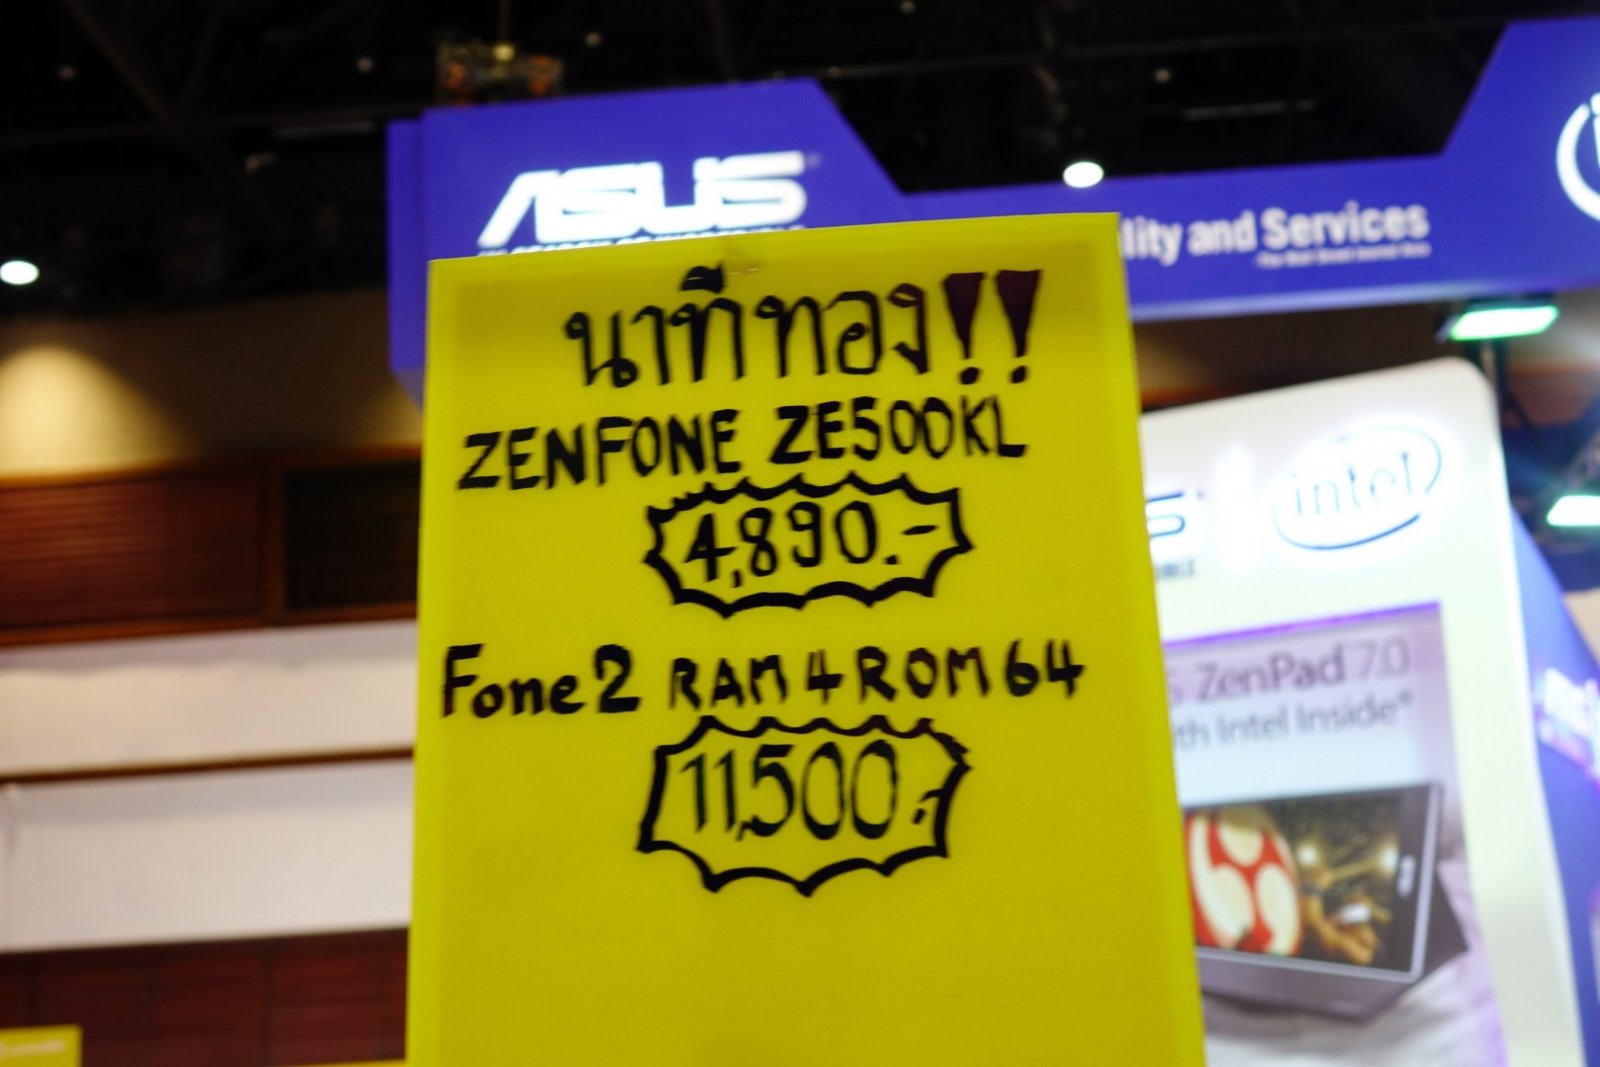 ASUS
lity and Services
นาทีทอง!!
ZENFONE ZE500KL
4,890.-
Fone2 RAM 4 ROM 64
11,500.-
intel
ZenPad 7.0
th Intel Inside®